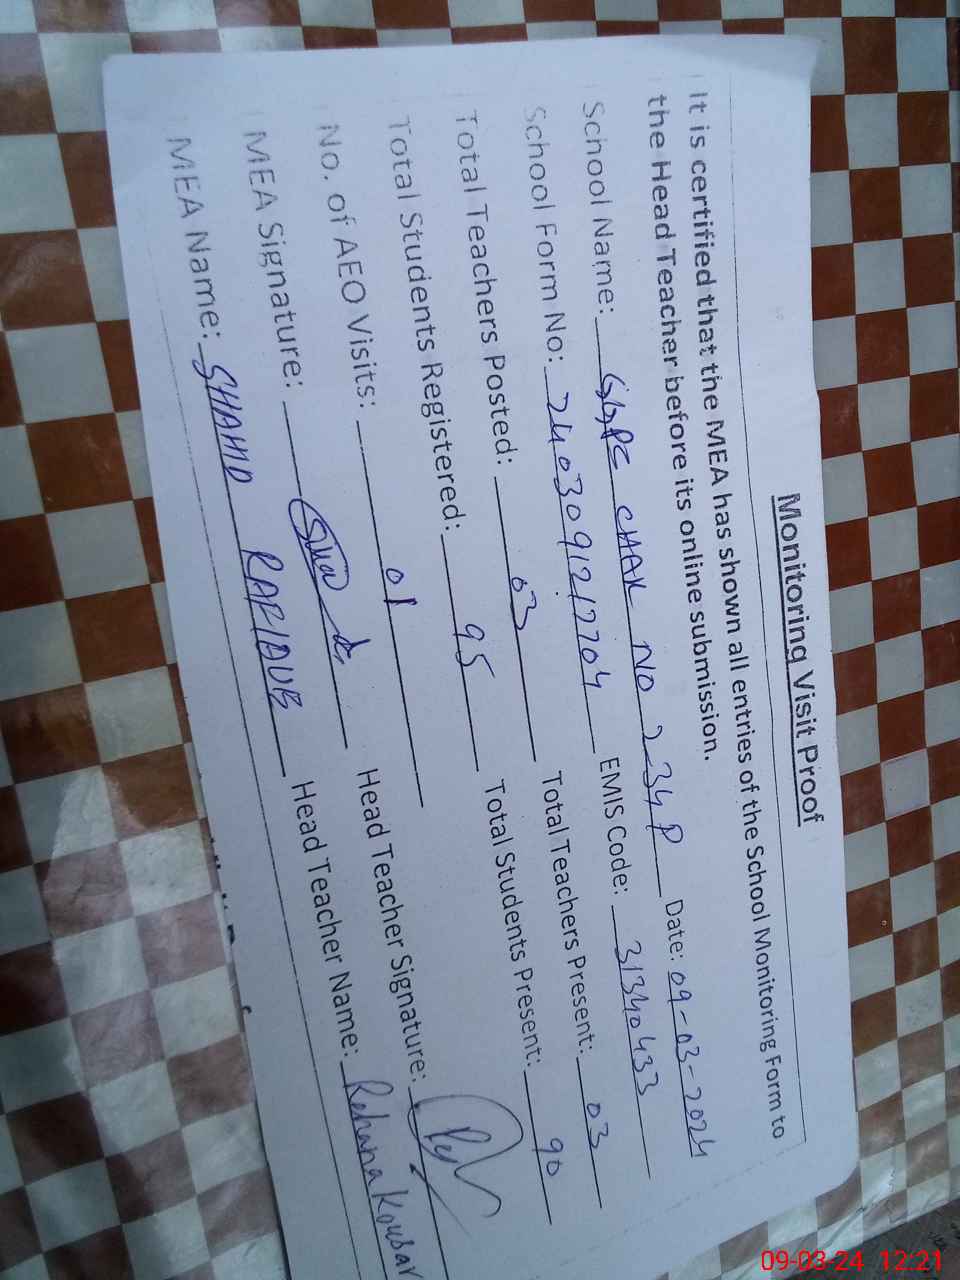 Monitoring Visit Proof
It is certified that the MEA has shown all entries of the School Monitoring Form to
the Head Teacher before its online submission.
School Name: GGPS CHAK NO 234 P Date: 09-03-2024
School Form No: 24030912127704 EMIS Code: 31340433
Total Teachers Posted: 03 Total Teachers Present: 03
Total Students Registered: 95 Total Students Present: 90
No. of AEO Visits: 01
MEA Signature: Head Teacher Signature:
MEA Name: SHAHID Head Teacher Name: Rehana Kousar
09-03-24 12:21